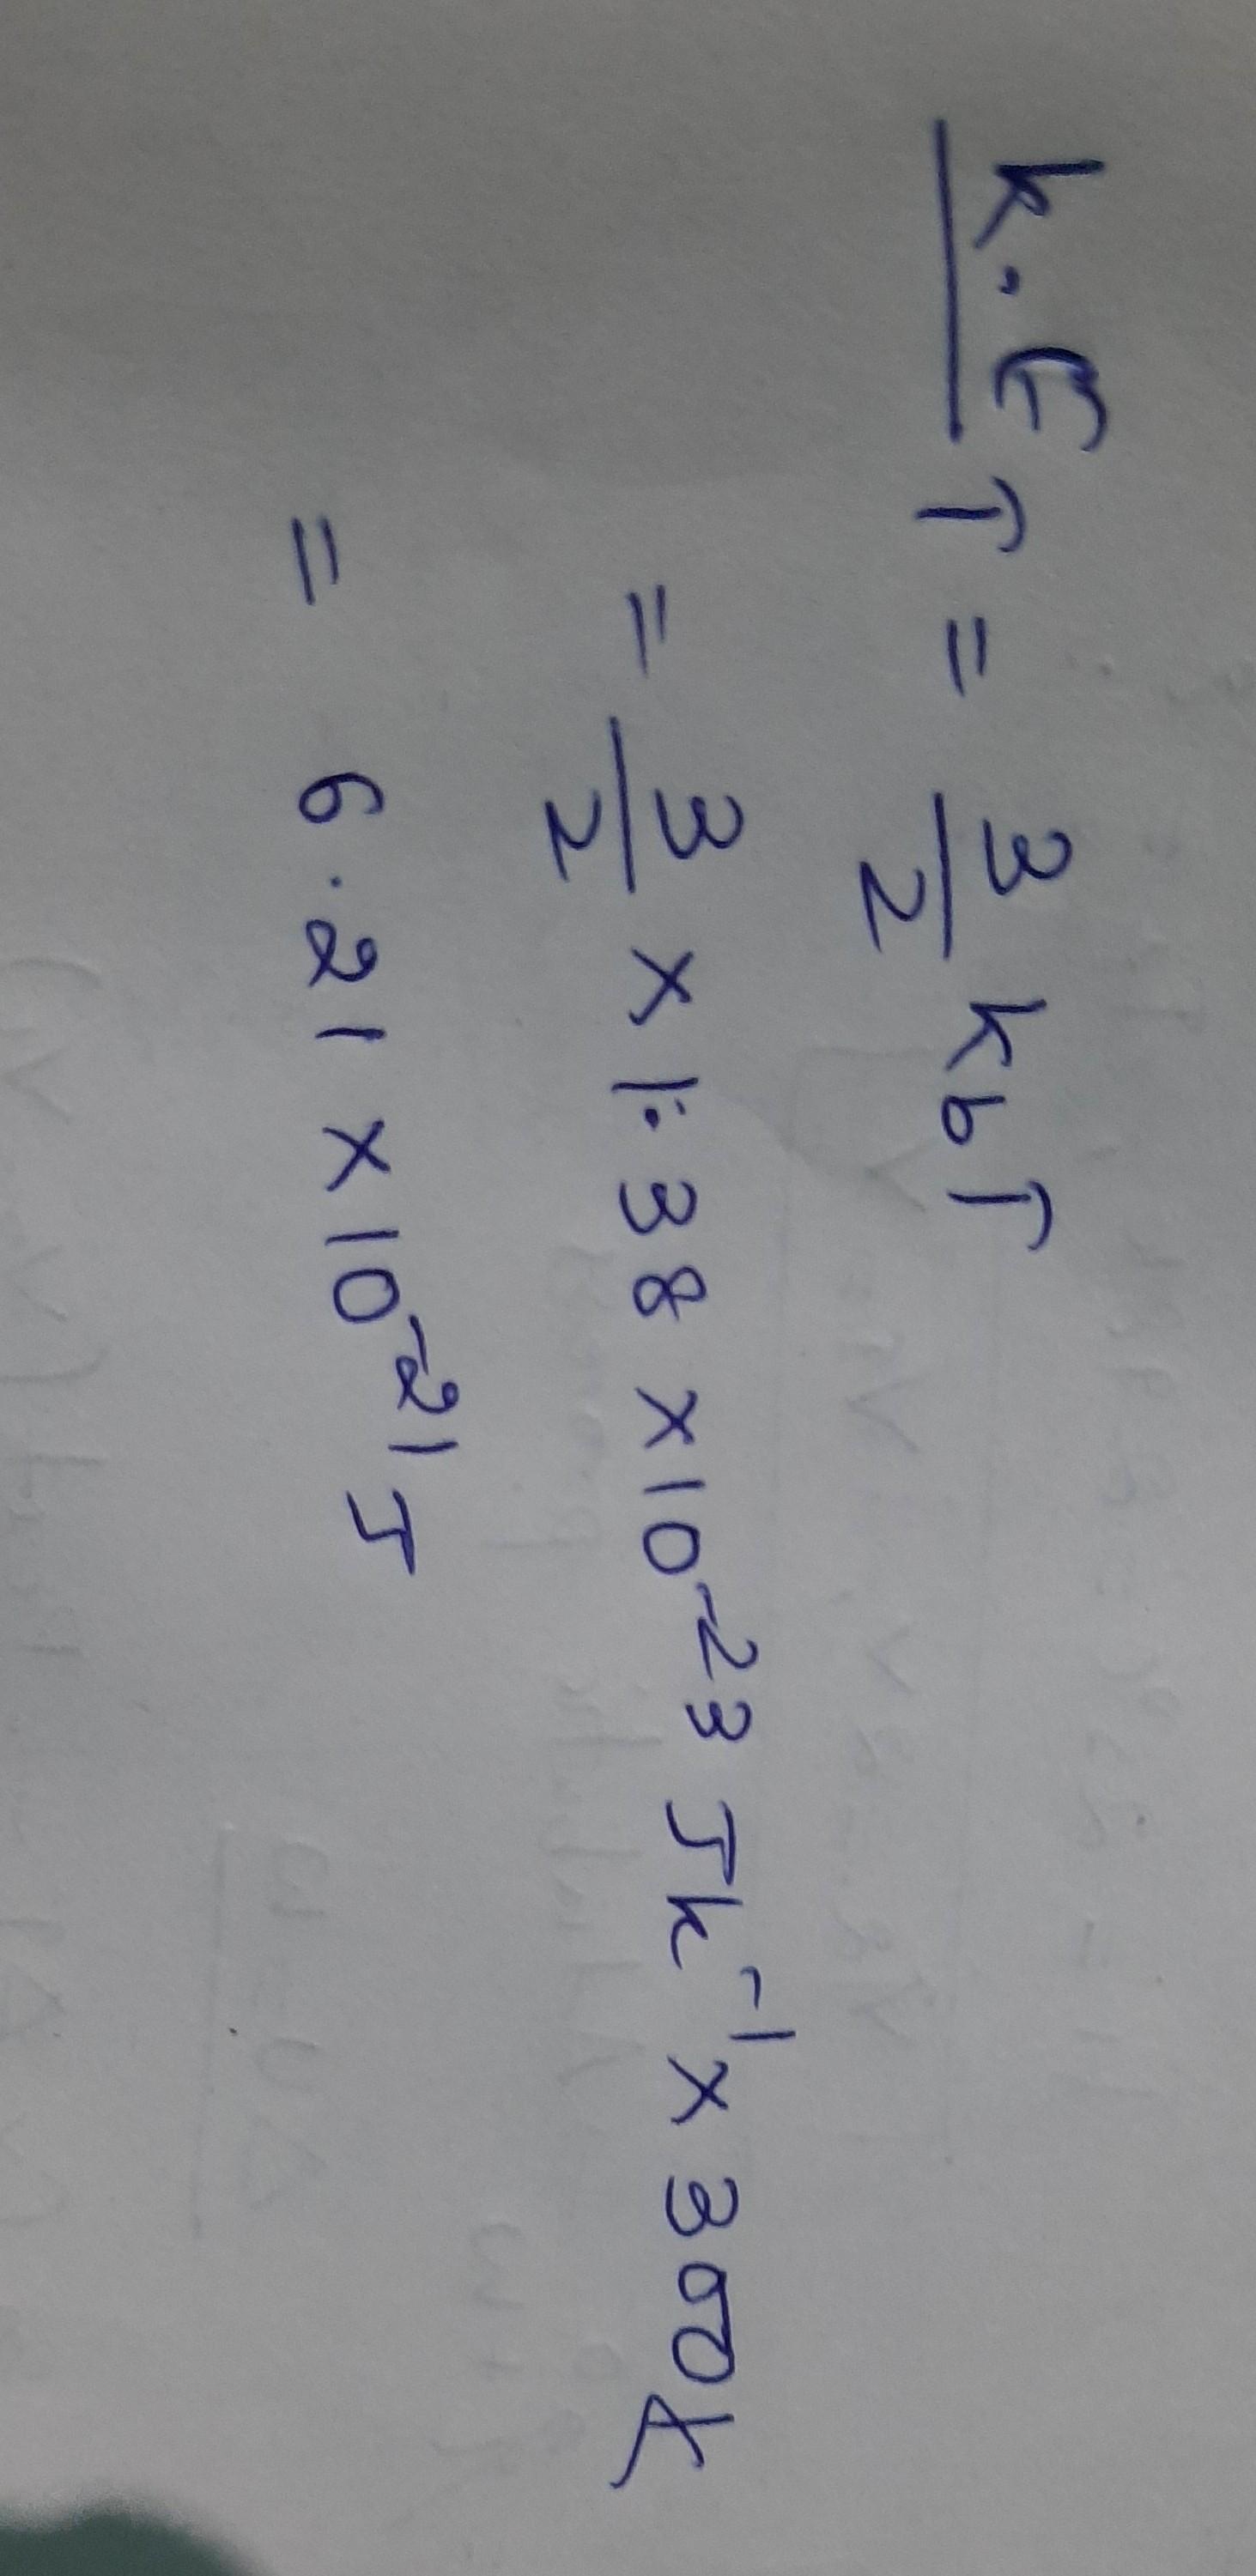 K.E T = 3/2 kbT
= 3/2 × 1.38 × 10⁻²³ Jk⁻¹ × 300K
= 6.21 × 10⁻²¹ J